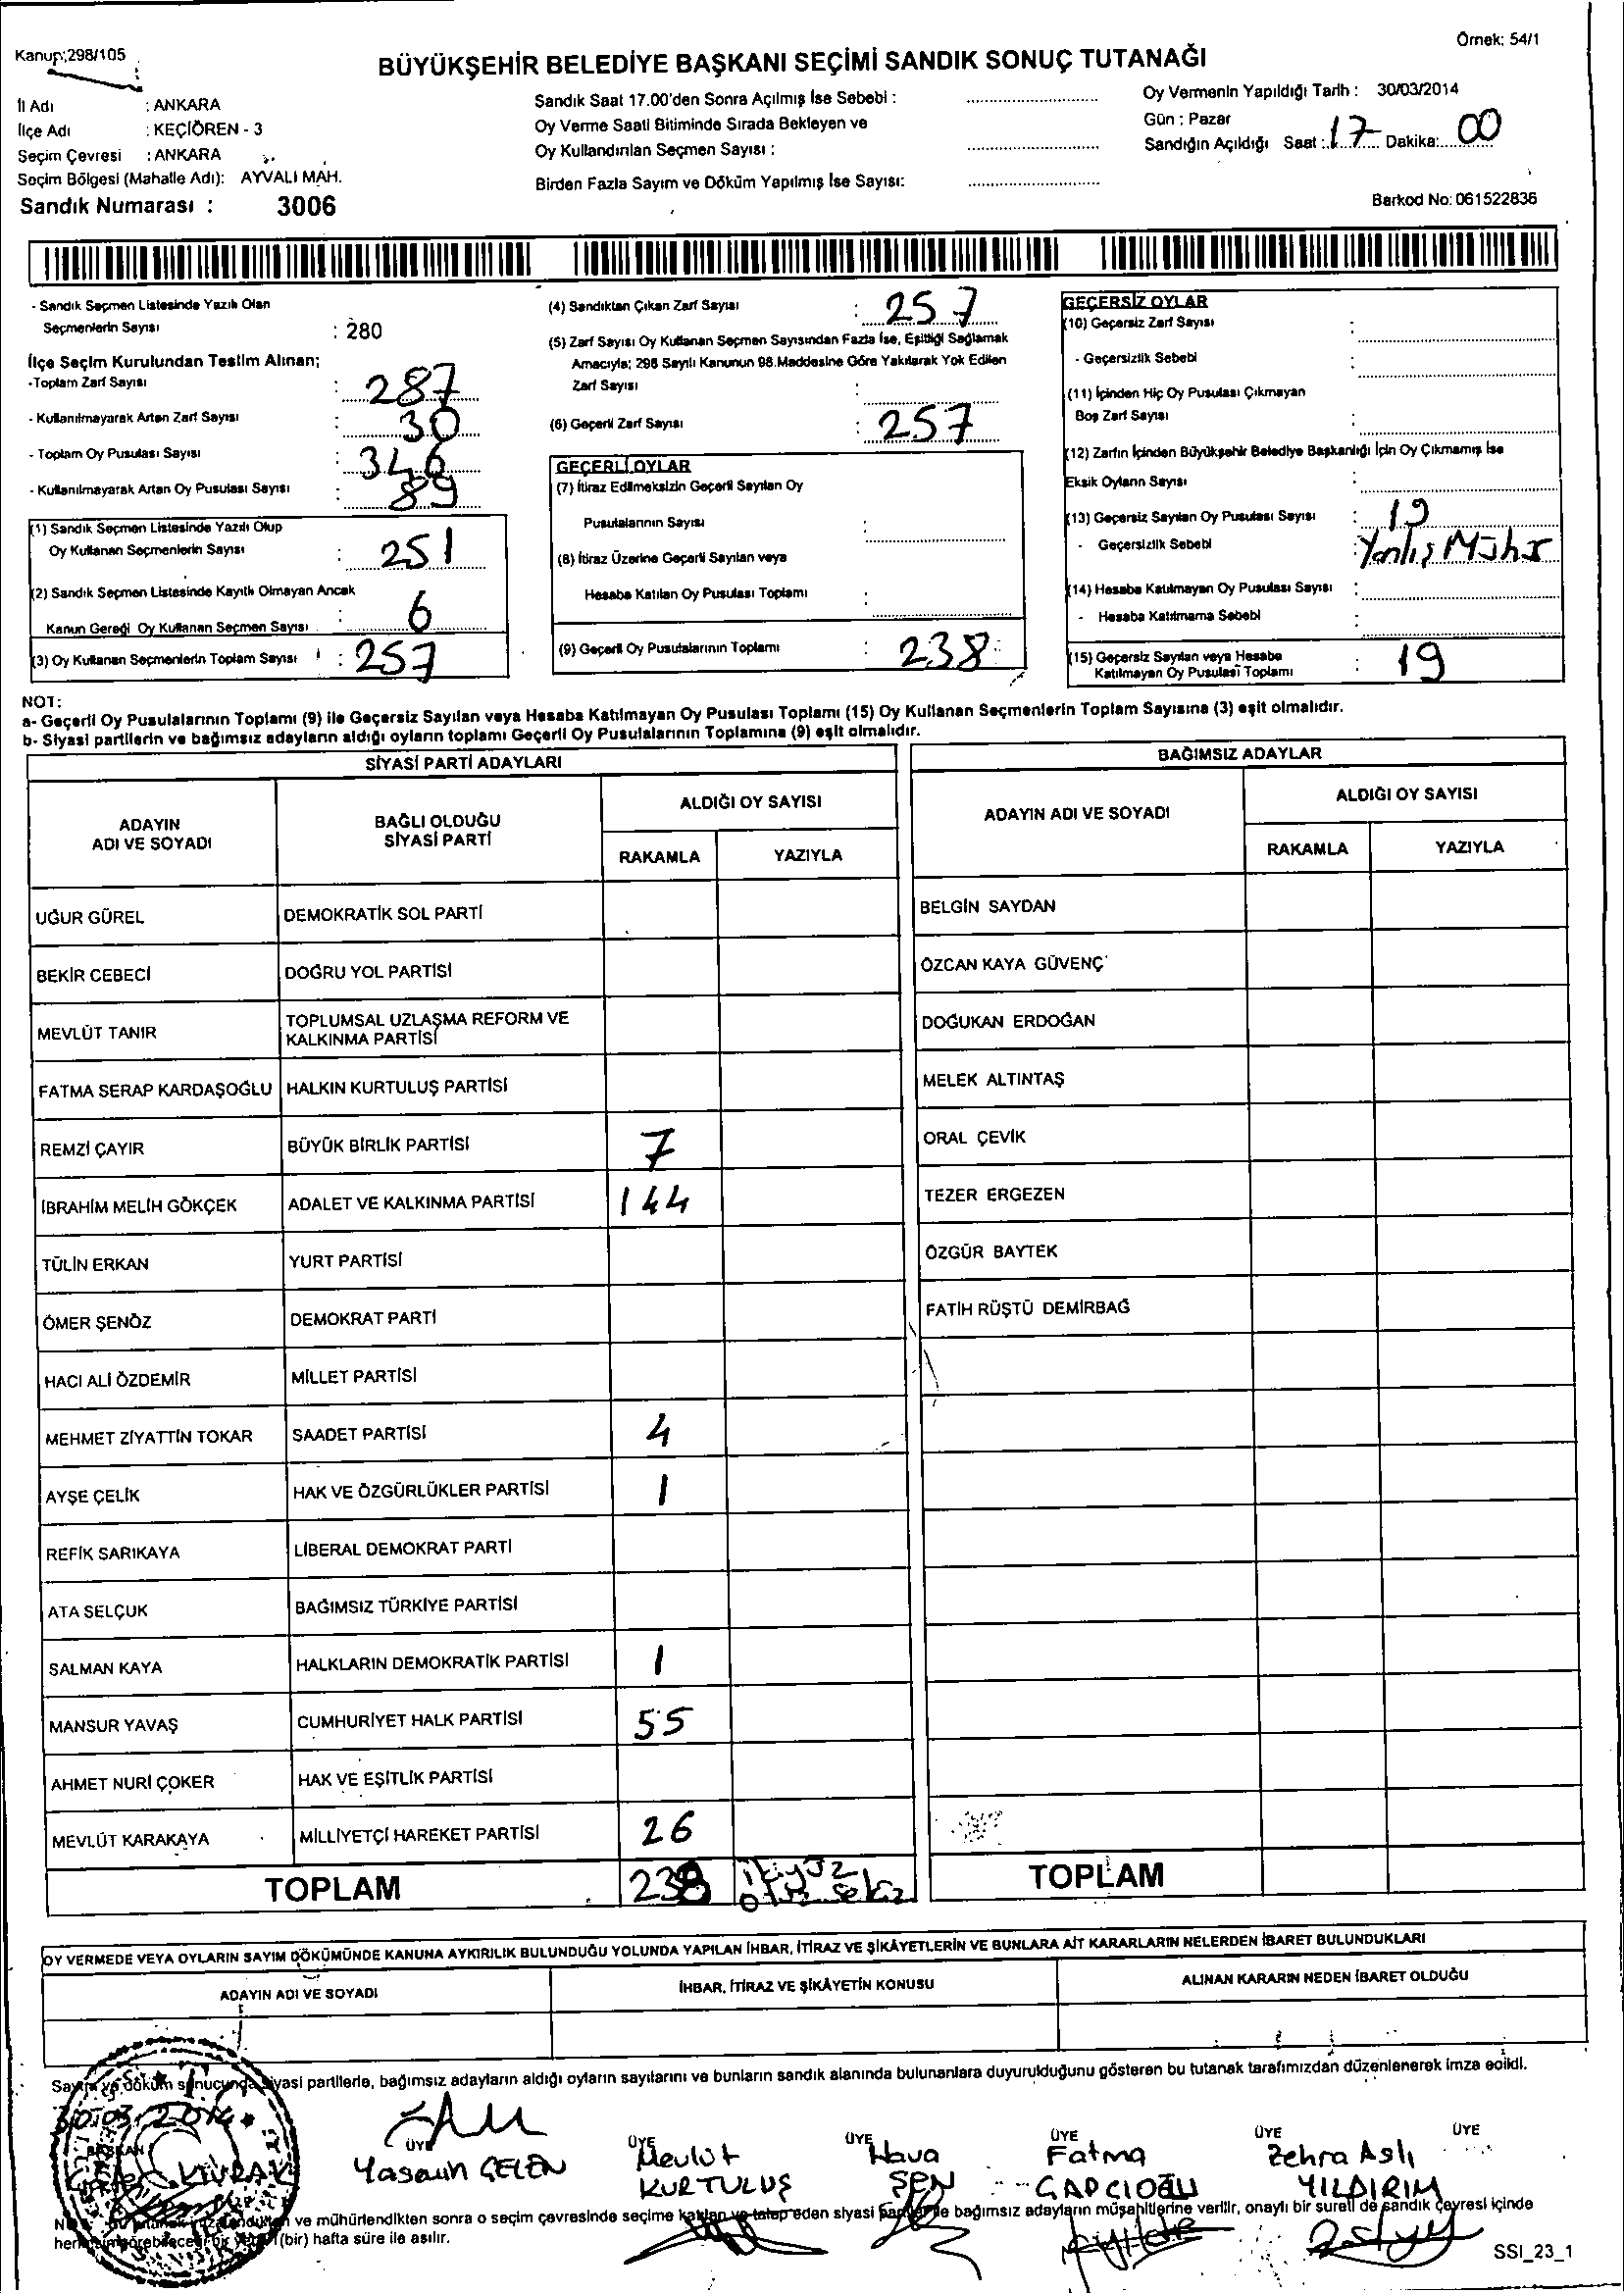 Kanun;298/105
Örnek: 54/1
BÜYÜKŞEHİR BELEDİYE BAŞKANI SEÇİMİ SANDIK SONUÇ TUTANAĞI
İl Adı : ANKARA
İlçe Adı : KEÇİÖREN - 3
Seçim Çevresi : ANKARA
Seçim Bölgesi (Mahalle Adı): AYVALI MAH.
Sandık Numarası : 3006
Sandık Saat 17.00'den Sonra Açılmış İse Sebebi :
Oy Verme Saati Bitiminde Sırada Bekleyen ve
Oy Kullandırılan Seçmen Sayısı :
Birden Fazla Sayım ve Döküm Yapılmış İse Sayısı:
Oy Vermenin Yapıldığı Tarih : 30/03/2014
Gün : Pazar
Sandığın Açıldığı Saat : 17 Dakika: 00
Barkod No: 061522836
- Sandık Seçmen Listesinde Yazılı Olan
Seçmenlerin Sayısı : 280
İlçe Seçim Kurulundan Teslim Alınan;
-Toplam Zarf Sayısı : 287
- Kullanılmayarak Artan Zarf Sayısı : 30
- Toplam Oy Pusulası Sayısı : 346
- Kullanılmayarak Artan Oy Pusulası Sayısı : 89
(1) Sandık Seçmen Listesinde Yazılı Olup
Oy Kullanan Seçmenlerin Sayısı : 251
(2) Sandık Seçmen Listesinde Kayıtlı Olmayan Ancak
Kanun Gereği Oy Kullanan Seçmen Sayısı : 6
(3) Oy Kullanan Seçmenlerin Toplam Sayısı : 257
(4) Sandıktan Çıkan Zarf Sayısı : 257
(5) Zarf Sayısı Oy Kullanan Seçmen Sayısından Fazla İse, Eşitliği Sağlamak
Amacıyla; 298 Sayılı Kanunun 98.Maddesine Göre Yakılarak Yok Edilen
Zarf Sayısı :
(6) Geçerli Zarf Sayısı : 257
GEÇERLİ OYLAR
(7) İtiraz Edilmeksizin Geçerli Sayılan Oy
Pusulalarının Sayısı :
(8) İtiraz Üzerine Geçerli Sayılan veya
Hesaba Katılan Oy Pusulası Toplamı :
(9) Geçerli Oy Pusulalarının Toplamı : 238
GEÇERSİZ OYLAR
(10) Geçersiz Zarf Sayısı :
- Geçersizlik Sebebi :
(11) İçinden Hiç Oy Pusulası Çıkmayan
Boş Zarf Sayısı :
(12) Zarfın İçinden Büyükşehir Belediye Başkanlığı İçin Oy Çıkmamış İse
Eksik Oyların Sayısı :
(13) Geçersiz Sayılan Oy Pusulası Sayısı : 19
- Geçersizlik Sebebi : Yanlış Mühür
(14) Hesaba Katılmayan Oy Pusulası Sayısı :
- Hesaba Katılmama Sebebi :
(15) Geçersiz Sayılan veya Hesaba
Katılmayan Oy Pusulası Toplamı : 19
NOT:
a- Geçerli Oy Pusulalarının Toplamı (9) ile Geçersiz Sayılan veya Hesaba Katılmayan Oy Pusulası Toplamı (15) Oy Kullanan Seçmenlerin Toplam Sayısına (3) eşit olmalıdır.
b- Siyasi partilerin ve bağımsız adayların aldığı oyların toplamı Geçerli Oy Pusulalarının Toplamına (9) eşit olmalıdır.
SİYASİ PARTİ ADAYLARI
ADAYIN ADI VE SOYADI
BAĞLI OLDUĞU SİYASİ PARTİ
ALDIĞI OY SAYISI
RAKAMLA YAZIYLA
UĞUR GÜREL DEMOKRATİK SOL PARTİ
BEKİR CEBECİ DOĞRU YOL PARTİSİ
MEVLÜT TANIR TOPLUMSAL UZLAŞMA REFORM VE KALKINMA PARTİSİ
FATMA SERAP KARDAŞOĞLU HALKIN KURTULUŞ PARTİSİ
REMZİ ÇAYIR BÜYÜK BİRLİK PARTİSİ 7
İBRAHİM MELİH GÖKÇEK ADALET VE KALKINMA PARTİSİ 144
TÜLİN ERKAN YURT PARTİSİ
ÖMER ŞENÖZ DEMOKRAT PARTİ
HACI ALİ ÖZDEMİR MİLLET PARTİSİ
MEHMET ZİYATTİN TOKAR SAADET PARTİSİ 4
AYŞE ÇELİK HAK VE ÖZGÜRLÜKLER PARTİSİ 1
REFİK SARIKAYA LİBERAL DEMOKRAT PARTİ
ATA SELÇUK BAĞIMSIZ TÜRKİYE PARTİSİ
SALMAN KAYA HALKLARIN DEMOKRATİK PARTİSİ 1
MANSUR YAVAŞ CUMHURİYET HALK PARTİSİ 55
AHMET NURİ ÇOKER HAK VE EŞİTLİK PARTİSİ
MEVLÜT KARAKAYA MİLLİYETÇİ HAREKET PARTİSİ 26
TOPLAM 238 ikiyüz otuz sekiz
BAĞIMSIZ ADAYLAR
ADAYIN ADI VE SOYADI
ALDIĞI OY SAYISI
RAKAMLA YAZIYLA
BELGİN SAYDAN
ÖZCAN KAYA GÜVENÇ
DOĞUKAN ERDOĞAN
MELEK ALTINTAŞ
ORAL ÇEVİK
TEZER ERGEZEN
ÖZGÜR BAYTEK
FATİH RÜŞTÜ DEMİRBAĞ
TOPLAM
OY VERMEDE VEYA OYLARIN SAYIM DÖKÜMÜNDE KANUNA AYKIRILIK BULUNDUĞU YOLUNDA YAPILAN İHBAR, İTİRAZ VE ŞİKÂYETLERİN VE BUNLARA AİT KARARLARIN NELERDEN İBARET BULUNDUKLARI
ADAYIN ADI VE SOYADI
İHBAR, İTİRAZ VE ŞİKÂYETİN KONUSU
ALINAN KARARIN NEDEN İBARET OLDUĞU
Sayım ve döküm sonucunda siyasi partilerle, bağımsız adayların aldığı oyların sayılarını ve bunların sandık alanında bulunanlara duyurulduğunu gösteren bu tutanak tarafımızdan düzenlenerek imza edildi.
30.03.2014
BAŞKAN ÜYE ÜYE ÜYE ÜYE ÜYE ÜYE
KIVRAK
Yasemin GELEN
Mevlüt KURTULUŞ
Hava ŞEN
Fatma
Zehra Aslı YILDIRIM
ve mühürlendikten sonra o seçim çevresinde seçime katılan ve talep eden siyasi bağımsız adayların müşahitlerine verilir, onaylı bir sureti de sandık çevresi içinde
(bir) hafta süre ile asılır.
SSI_23_1